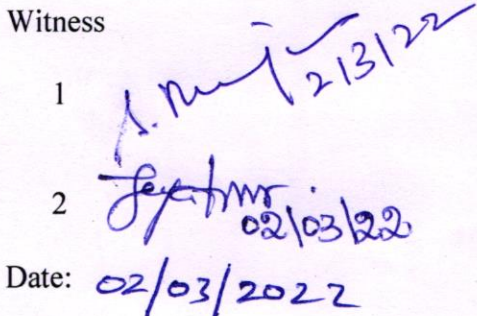 Witness
1 2/3/22
2 02/03/22
Date: 02/03/2022